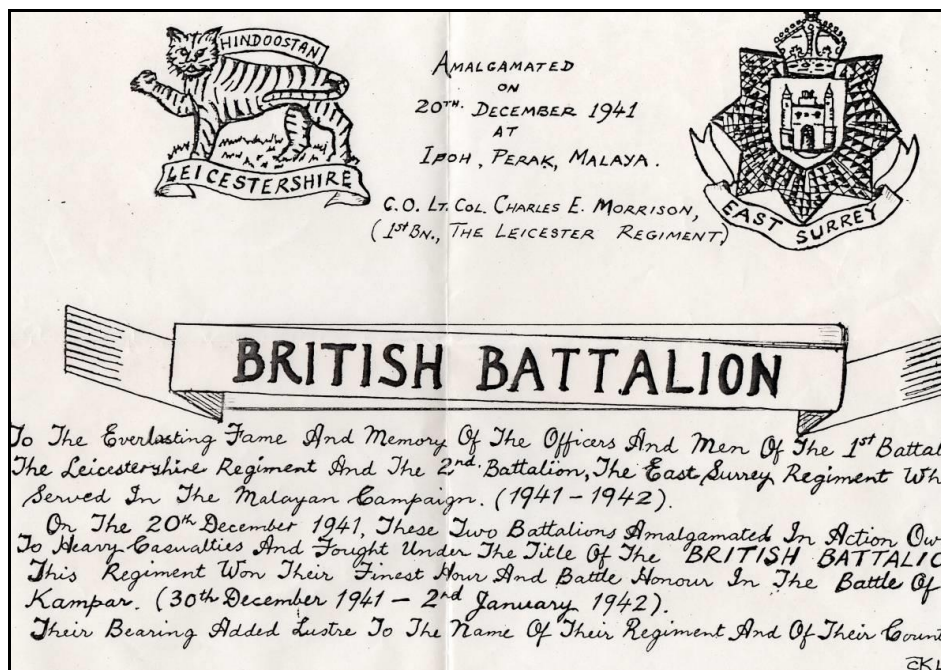 HINDOOSTAN
LEICESTERSHIRE
AMALGAMATED
ON
20TH. DECEMBER 1941
AT
IPOH, PERAK, MALAYA.
C.O. LT. COL. CHARLES E. MORRISON,
(1st BN., THE LEICESTER REGIMENT)
EAST SURREY
BRITISH BATTALION
To The Everlasting Fame And Memory Of The Officers And Men Of The 1st Battal
The Leicestershire Regiment And The 2nd. Battalion, The East Surrey Regiment Wh
Served In The Malayan Campaign. (1941 - 1942).
On The 20th December 1941, These Two Battalions Amalgamated In Action Ow
To Heavy Casualties And Fought Under The Title Of The BRITISH BATTALIO
This Regiment Won Their Finest Hour And Battle Honour In The Battle Of
Kampar. (30th December 1941 - 2nd January 1942).
Their Bearing Added Lustre To The Name Of Their Regiment And Of Their Count